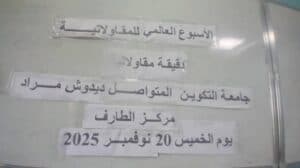 الأسبوع العالمي للمقاولاتية
دقيقة مقاولا
جامعة التكوين المتواصل ديدوش مراد
مركز الطارف
يوم الخميس 20 نوفمبر 2025